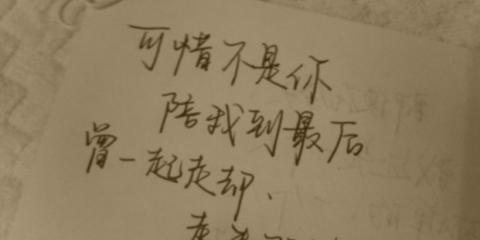 可惜不是你
陪我到最后
曾一起走却、